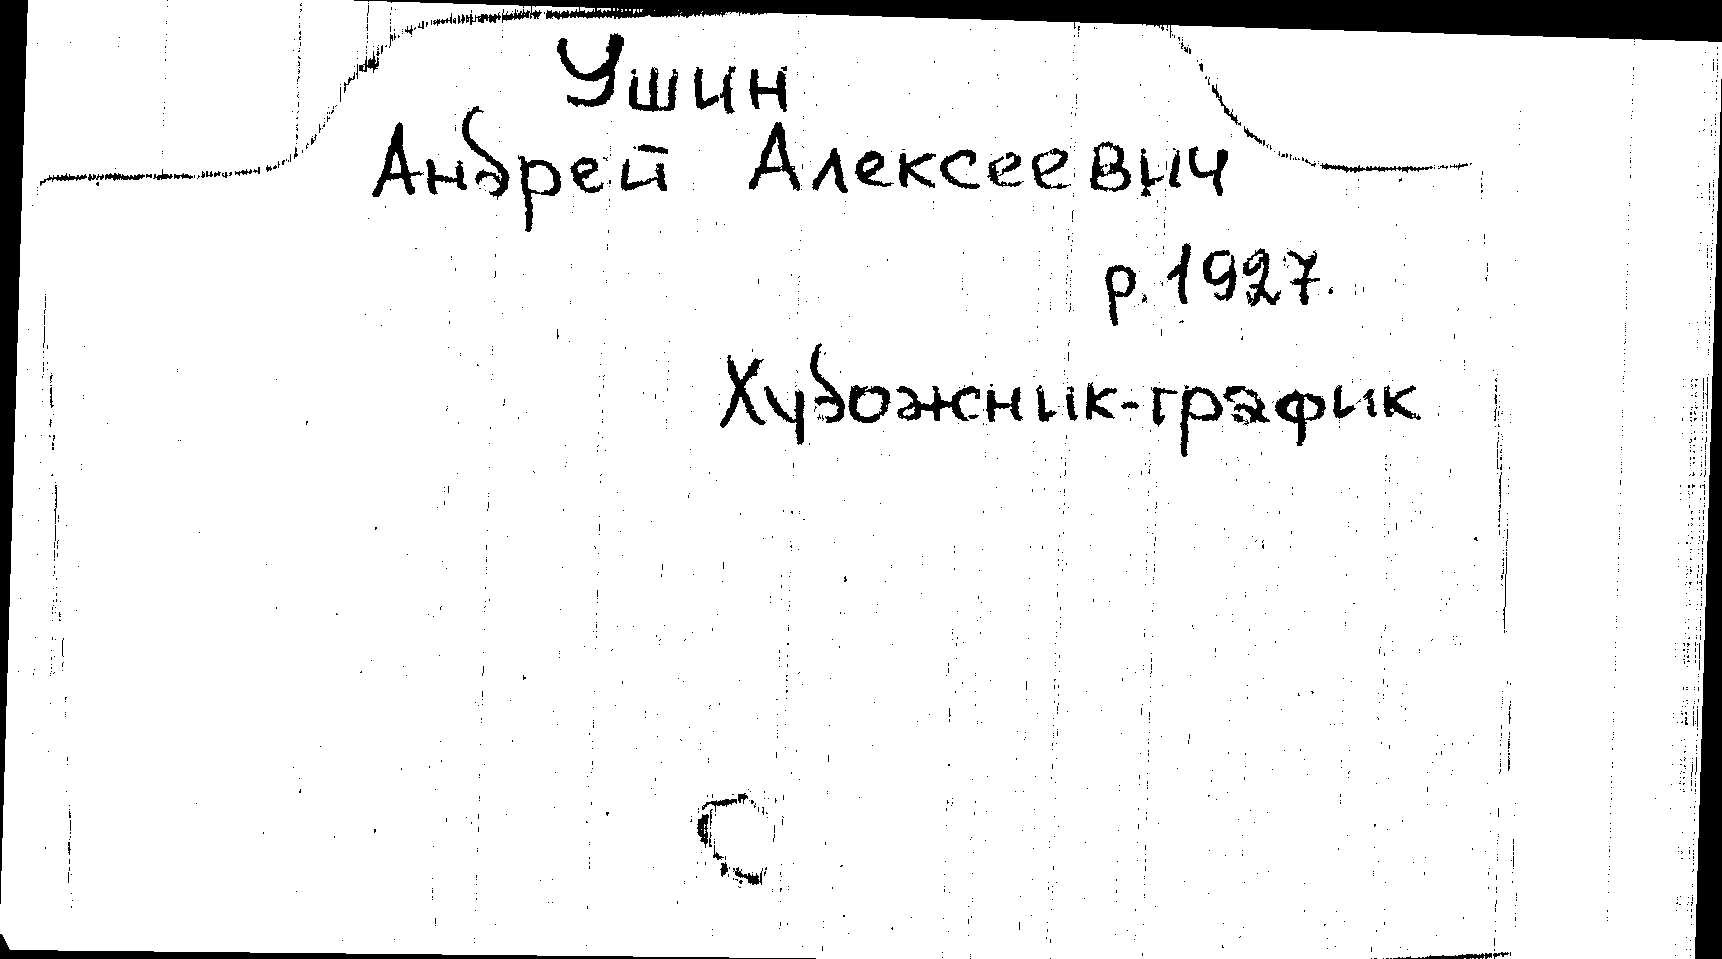 Ушин
Андрей Алексеевич
р. 1927.
Художник-график